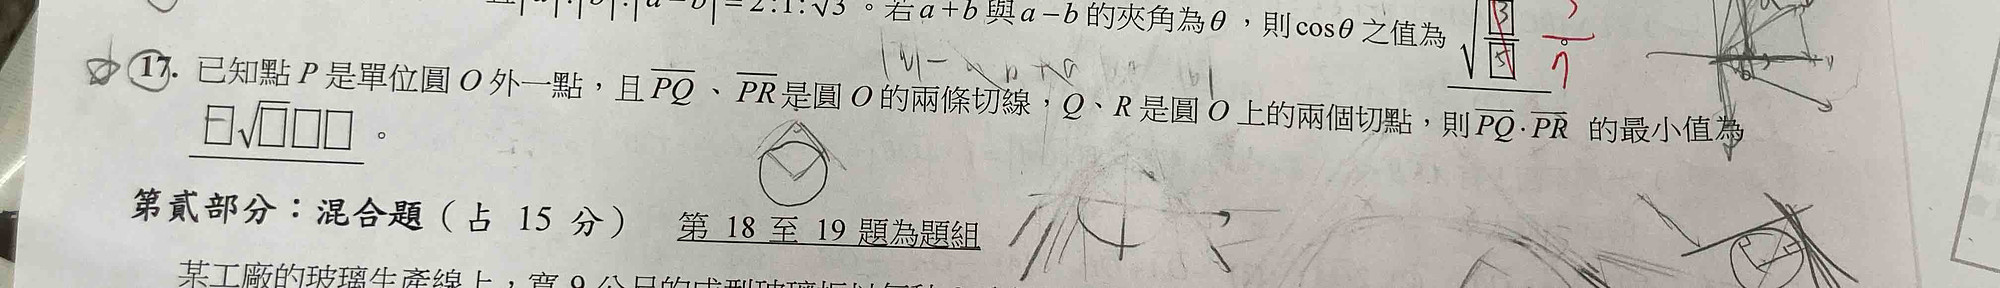 |a|:|b|:|a−b|=2:1:√3。若a+b與a−b的夾角為θ，則cosθ之值為 √3/5
17. 已知點P是單位圓O外一點，且PQ、PR是圓O的兩條切線，Q、R是圓O上的兩個切點，則PQ·PR 的最小值為
□√□□□。
第貳部分：混合題（占 15 分） 第 18 至 19 題為題組
某工廠的玻璃生產線上，寬 9 公尺的成型玻璃板以每秒